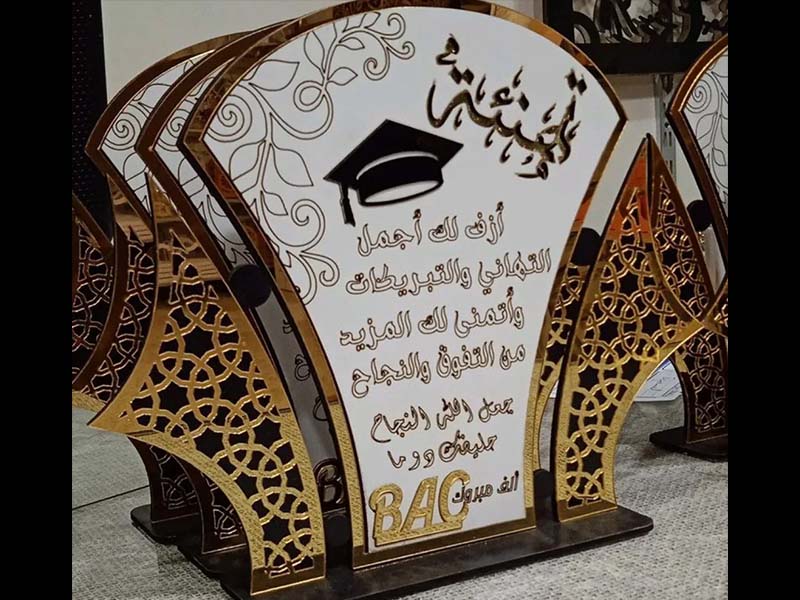 تهنئة
أزف لك أجمل
التهاني والتبريكات
وأتمنى لك المزيد
من التفوق والنجاح
جعل الله النجاح
حليفك دوما
ألف مبروك BAC